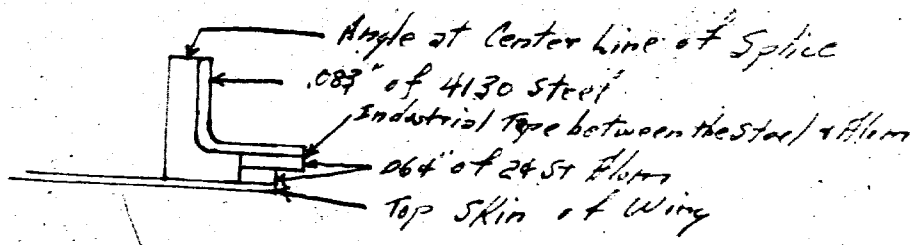 Angle at Center Line of Splice
.083" of 4130 Steel
Industrial Tape between the Steel & Alum
.064" of 24 ST Alum
Top Skin of Wing